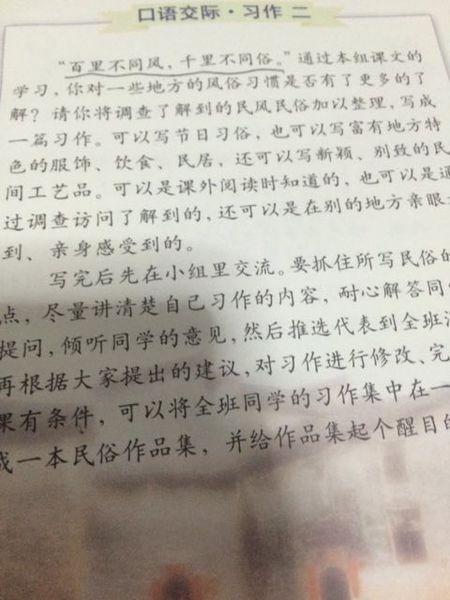 口语交际·习作 二
“百里不同风，千里不同俗。”通过本组课文的
学习，你对一些地方的风俗习惯是否有了更多的了
解？请你将调查了解到的民风民俗加以整理，写成
一篇习作。可以写节日习俗，也可以写富有地方特
色的服饰、饮食、民居，还可以写新颖、别致的民
间工艺品。可以是课外阅读时知道的，也可以是通
过调查访问了解到的，还可以是在别的地方亲眼
到、亲身感受到的。
写完后先在小组里交流。要抓住所写民俗的
点，尽量讲清楚自己习作的内容，耐心解答同
提问，倾听同学的意见，然后推选代表到全班
再根据大家提出的建议，对习作进行修改、完
果有条件，可以将全班同学的习作集中在一
成一本民俗作品集，并给作品集起个醒目的